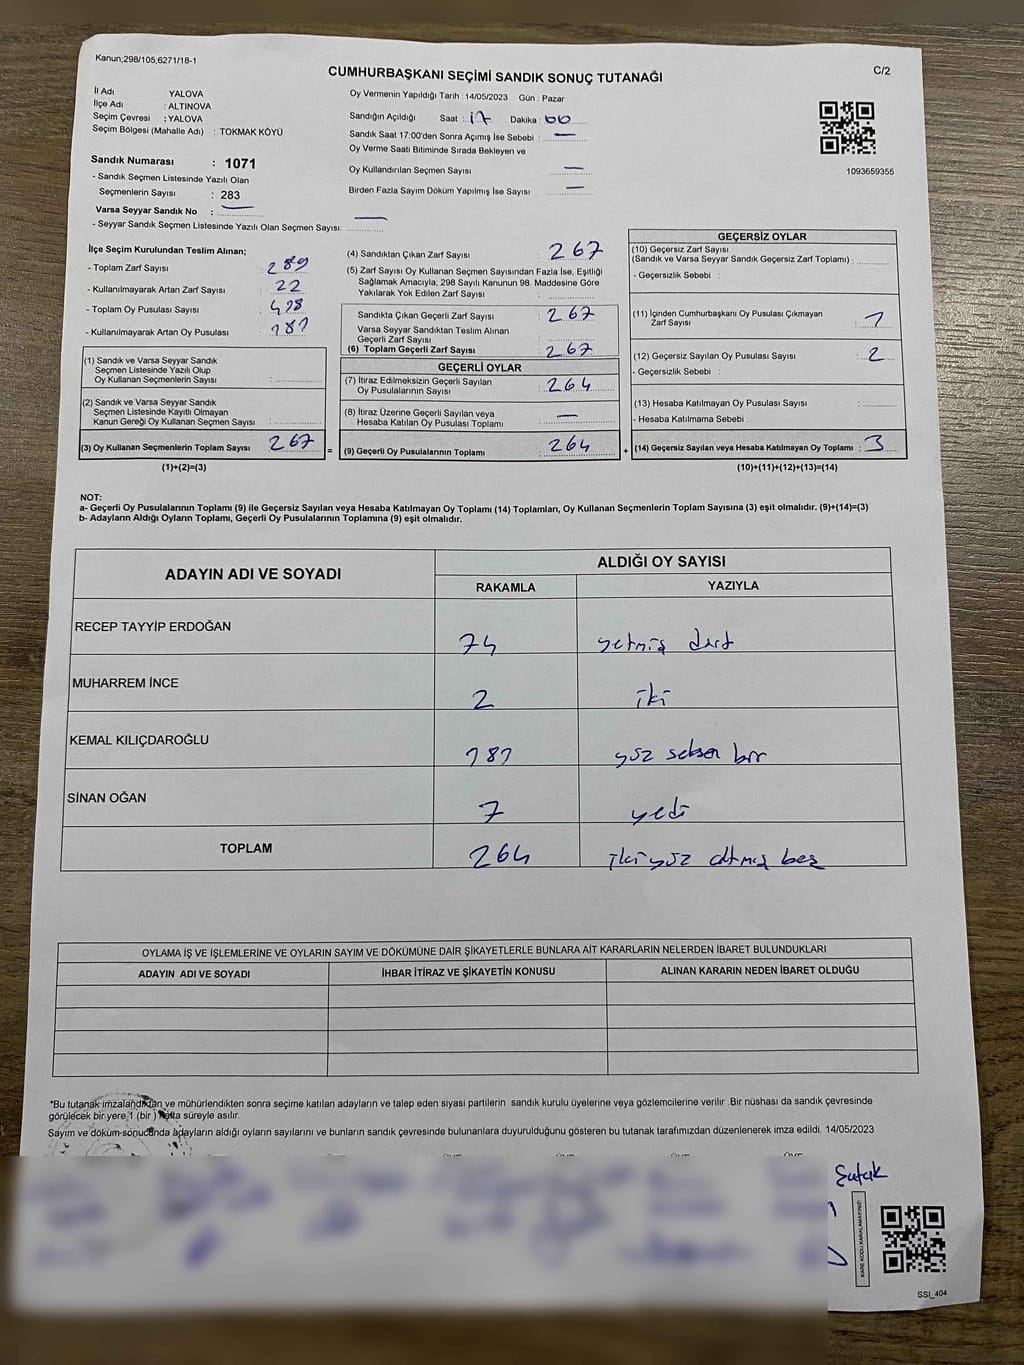 Kanun;298/105,6271/18-1
CUMHURBAŞKANI SEÇİMİ SANDIK SONUÇ TUTANAĞI
C/2
İl Adı YALOVA
İlçe Adı : ALTINOVA
Seçim Çevresi : YALOVA
Seçim Bölgesi (Mahalle Adı) : TOKMAK KÖYÜ
Sandık Numarası : 1071
- Sandık Seçmen Listesinde Yazılı Olan
Seçmenlerin Sayısı : 283
Varsa Seyyar Sandık No : —
- Seyyar Sandık Seçmen Listesinde Yazılı Olan Seçmen Sayısı: —
Oy Vermenin Yapıldığı Tarih :14/05/2023 Gün : Pazar
Sandığın Açıldığı Saat : 17 Dakika : 00
Sandık Saat 17:00'den Sonra Açımış İse Sebebi : —
Oy Verme Saati Bitiminde Sırada Bekleyen ve
Oy Kullandırılan Seçmen Sayısı : —
Birden Fazla Sayım Döküm Yapılmış İse Sayısı : —
1093659355
İlçe Seçim Kurulundan Teslim Alınan;
- Toplam Zarf Sayısı : 289
- Kullanılmayarak Artan Zarf Sayısı : 22
- Toplam Oy Pusulası Sayısı :
- Kullanılmayarak Artan Oy Pusulası :
(1) Sandık ve Varsa Seyyar Sandık
Seçmen Listesinde Yazılı Olup
Oy Kullanan Seçmenlerin Sayısı :
(2) Sandık ve Varsa Seyyar Sandık
Seçmen Listesinde Kayıtlı Olmayan
Kanun Gereği Oy Kullanan Seçmen Sayısı :
(3) Oy Kullanan Seçmenlerin Toplam Sayısı : 267
(1)+(2)=(3)
=
(4) Sandıktan Çıkan Zarf Sayısı : 267
(5) Zarf Sayısı Oy Kullanan Seçmen Sayısından Fazla İse, Eşitliği
Sağlamak Amacıyla, 298 Sayılı Kanunun 98. Maddesine Göre
Yakılarak Yok Edilen Zarf Sayısı :
Sandıkta Çıkan Geçerli Zarf Sayısı : 267
Varsa Seyyar Sandıktan Teslim Alınan
Geçerli Zarf Sayısı :
(6) Toplam Geçerli Zarf Sayısı : 267
GEÇERLİ OYLAR
(7) İtiraz Edilmeksizin Geçerli Sayılan
Oy Pusulalarının Sayısı : 264
(8) İtiraz Üzerine Geçerli Sayılan veya
Hesaba Katılan Oy Pusulası Toplamı : —
(9) Geçerli Oy Pusulalarının Toplamı : 264
+
GEÇERSİZ OYLAR
(10) Geçersiz Zarf Sayısı
(Sandık ve Varsa Seyyar Sandık Geçersiz Zarf Toplamı) :
- Geçersizlik Sebebi :
(11) İçinden Cumhurbaşkanı Oy Pusulası Çıkmayan
Zarf Sayısı : 1
(12) Geçersiz Sayılan Oy Pusulası Sayısı : 2
- Geçersizlik Sebebi :
(13) Hesaba Katılmayan Oy Pusulası Sayısı :
- Hesaba Katılmama Sebebi :
(14) Geçersiz Sayılan veya Hesaba Katılmayan Oy Toplamı : 3
(10)+(11)+(12)+(13)=(14)
NOT:
a- Geçerli Oy Pusulalarının Toplamı (9) ile Geçersiz Sayılan veya Hesaba Katılmayan Oy Toplamı (14) Toplamları, Oy Kullanan Seçmenlerin Toplam Sayısına (3) eşit olmalıdır. (9)+(14)=(3)
b- Adayların Aldığı Oyların Toplamı, Geçerli Oy Pusulalarının Toplamına (9) eşit olmalıdır.
ADAYIN ADI VE SOYADI
ALDIĞI OY SAYISI
RAKAMLA YAZIYLA
RECEP TAYYİP ERDOĞAN 74 yetmiş dört
MUHARREM İNCE 2 iki
KEMAL KILIÇDAROĞLU 181 yüz seksen bir
SİNAN OĞAN 7 yedi
TOPLAM 264 ikiyüz altmış beş
OYLAMA İŞ VE İŞLEMLERİNE VE OYLARIN SAYIM VE DÖKÜMÜNE DAİR ŞİKAYETLERLE BUNLARA AİT KARARLARIN NELERDEN İBARET BULUNDUKLARI
ADAYIN ADI VE SOYADI İHBAR İTİRAZ VE ŞİKAYETİN KONUSU ALINAN KARARIN NEDEN İBARET OLDUĞU
*Bu tutanak imzalandıktan ve mühürlendikten sonra seçime katılan adayların ve talep eden siyasi partilerin sandık kurulu üyelerine veya gözlemcilerine verilir .Bir nüshası da sandık çevresinde
görülecek bir yere 1 (bir ) hafta süreyle asılır.
Sayım ve döküm sonucunda adayların aldığı oyların sayılarını ve bunların sandık çevresinde bulunanlara duyurulduğunu gösteren bu tutanak tarafımızdan düzenlenerek imza edildi. 14/05/2023
KARE KODU KARALAMAYINIZ!
SSI_404